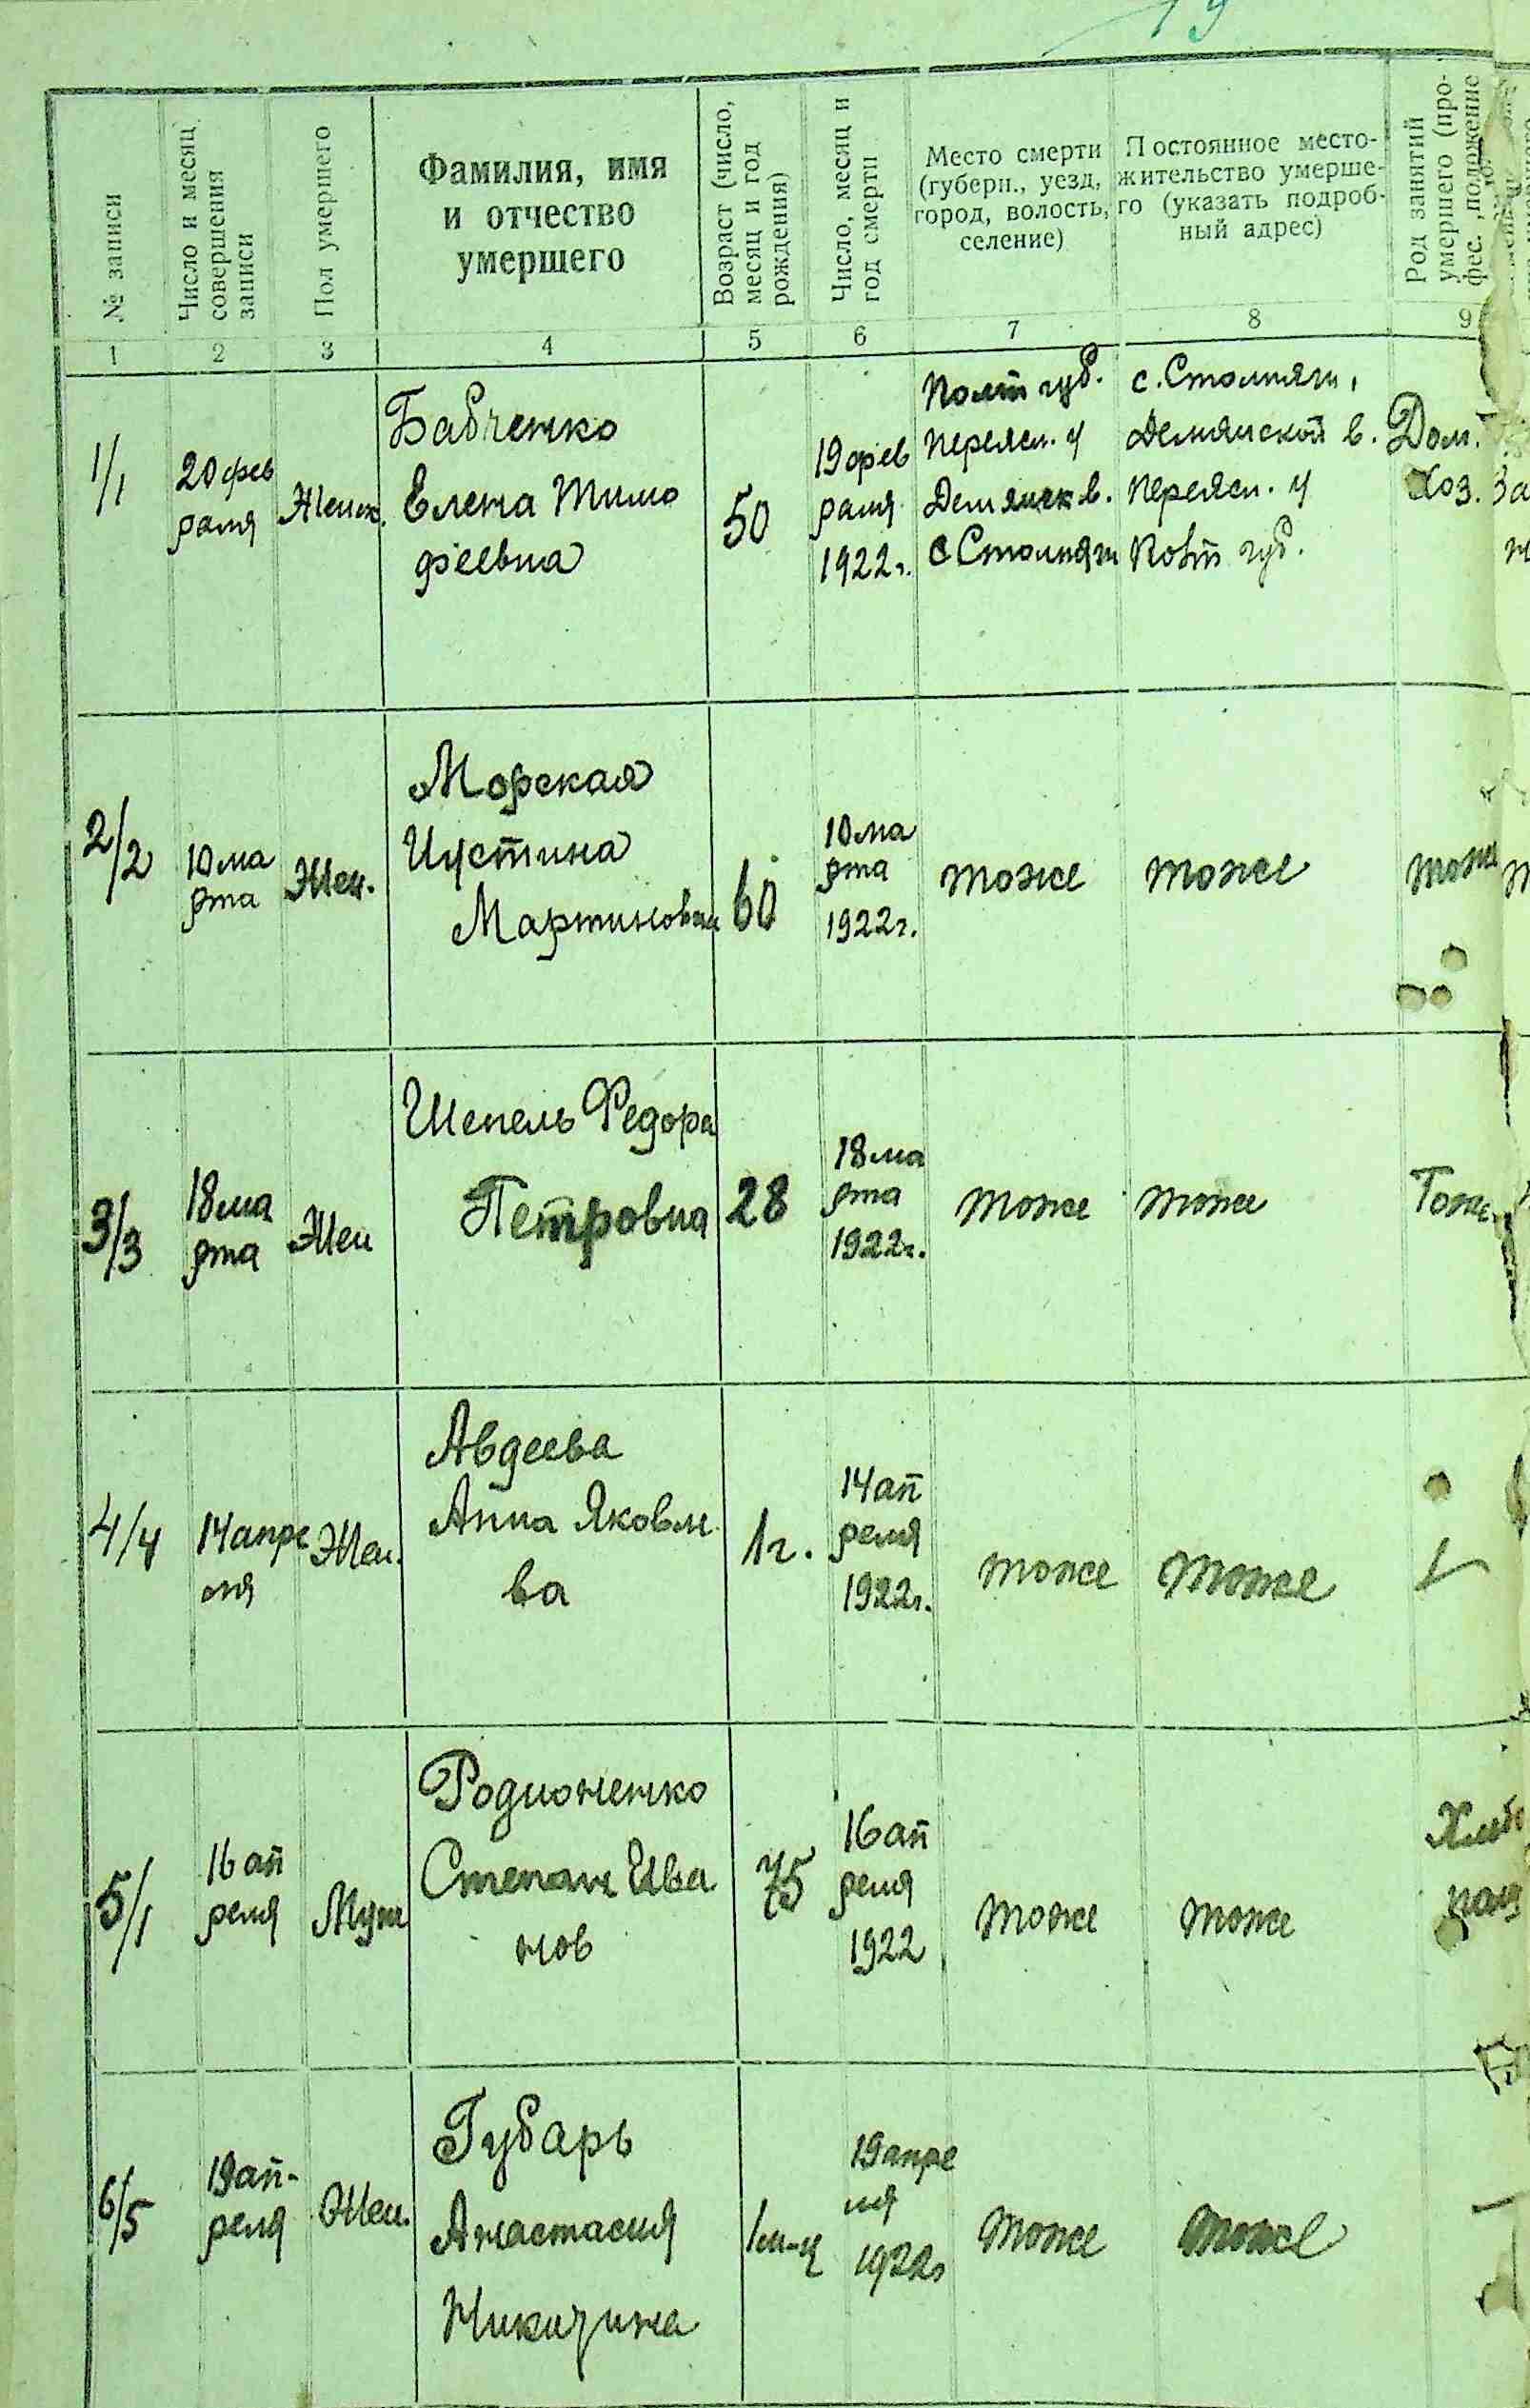 19
№ записи
Число и месяц
совершения
записи
Пол умершего
Фамилия, имя
и отчество
умершего
Возраст (число,
месяц и год
рождения)
Число, месяц и
год смерти
Место смерти
(губерн., уезд,
город, волость,
селение)
Постоянное место-
жительство умерше-
го (указать подроб-
ный адрес)
Род занятий
умершего (про-
фес., положение
1
2
3
4
5
6
7
8
9
1/1
20 фев
раля
Женск.
Бабченко
Елена Тимо
феевна
50
19 фев
раля
1922г.
Полт губ.
Переясл. у
Демянск в.
с Столпяги
с. Столпяги,
Демянской в.
Переясл. у
Полт губ.
Дом.
Хоз.
2/2
10 ма
рта
Жен.
Морская
Иустина
Мартиновна
60
10 ма
рта
1922г.
тоже
тоже
тоже
3/3
18 ма
рта
Жен
Шепель Федора
Петровна
28
18 ма
рта
1922г.
тоже
тоже
Тоже
4/4
14 апре
ля
Жен.
Авдеева
Анна Яковле
ва
1 г.
14 ап
реля
1922г.
тоже
тоже
5/1
16 ап
реля
Муж
Родионенко
Степан Ива
нов
75
16 ап
реля
1922
тоже
тоже
6/5
19 ап-
реля
Жен.
Губарь
Анастасия
Никитина
1 м-ц
19 апре
ля
1922г
тоже
тоже